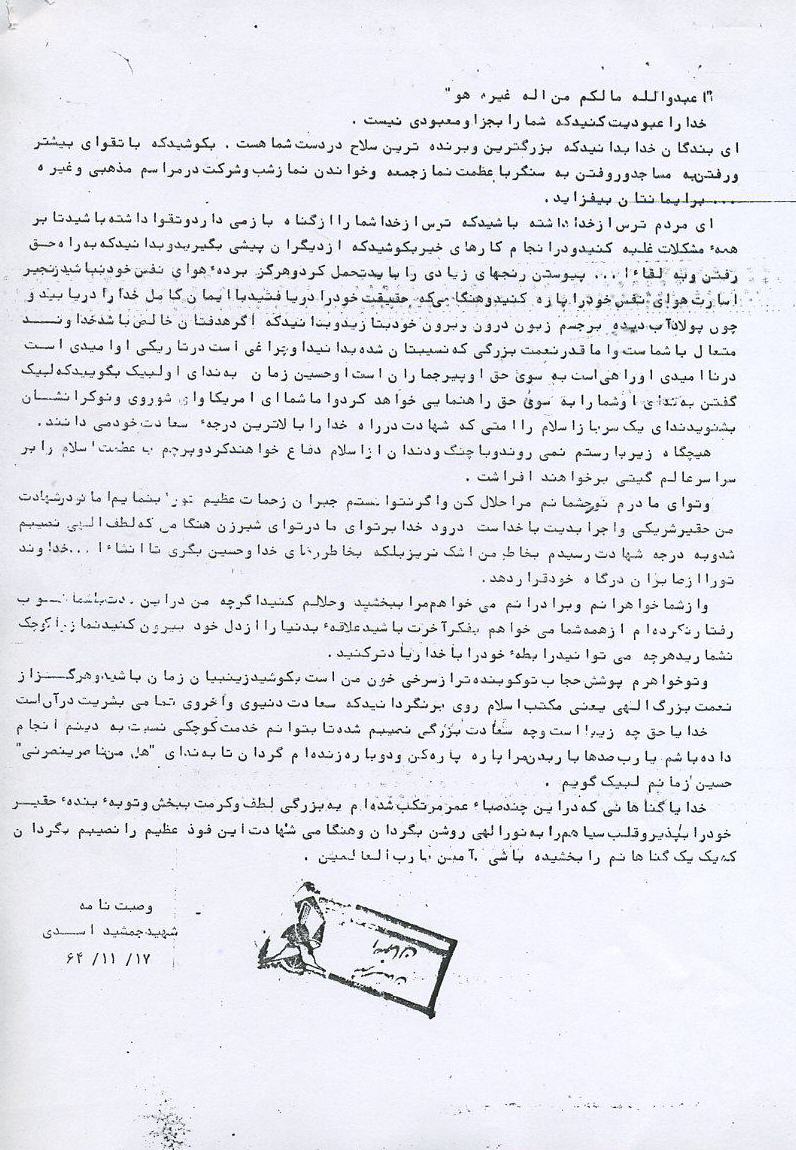 "اعبدوالله مالکم من اله غیره هو"
خدا را عبودیت کنیدکه شما را بجزا و معبودی نیست .
ای بندگان خدا بدانیدکه بزرگترین وبرنده ترین سلاح دردست شما هست . بکوشیدکه با تقوای بیشتر
ورفتن به مساجدورفتن به سنگر با عظمت نماز جمعه وخواندن نماز شب وشرکت درمراسم مذهبی وغیره
... برایمانتان بیفزاید.
ای مردم ترس از خدا داشته باشیدکه ترس از خدا شما را از گناه بازمی داردوتقوا داشته باشیدتا بر
همهء مشکلات غلبه کنیدودرانجام کارهای خیر بکوشیدکه از دیگران پیشی بگیریدوبدانیدکه به راه حق
رفتن وبه لقاءا... پیوستن رنجهای زیادی را بایدتحمل کردوهرگز بردهءهوای نفس خودنباشیدزنجیر
اسارت هوای نفس خودرا پاره کنیدوهنگامی که حقیقت خودرا دریافتید با ایمان کامل خدا را دریابید و
چون پولادآب دیده برجسم زبون درون وبرون خودبتازیدوبدانیدکه اگرهدفتان خالص باشدخداونــد
متعال با شماست واما قدرنعمت بزرگی که نصیبتان شده بدانیداوچراغی است درتاریکی اوامیدی است
درناامیدی اوراهی است به سوی حق اوپیرجماران است اوحسین زمان به ندای اولبیک بگوییدکه لبیک
گفتن به ندای اوشما را به سوی حق راهنمایی خواهد کردواما شمای امریکا وای شوروی ونوکرانشان
بشنویدندای یک سرباز اسلام را امتی که شهادت درراه خدا را بالاترین درجهء سعادت خودمی دانند.
هیچگاه زیربار ستم نمی روندوبا چنگ ودندان از اسلام دفاع خواهندکردوپرچم با عظمت اسلام را بر
سراسرعالم گیتی برخواهند افراشت .
وتوای مادرم نورچشمانم مرا حلال کن واگرنتوانستم جبران زحمات عظیم تورا بنمایم اما تودرشهادت
من حقیرشریکی واجرا بدیت باخداست درود خدا برتوای مادرتوای شیرزن هنگامی که لطف الهی نصیبم
شدوبه درجه شهادت رسیدم بخاطر من اشک نریزبلکه بخاطررضای خدا وحسین بگری تا انشاءا... خداوند
تورا ازصابران درگاه خودقراردهد.
وازشما خواهرانم وبرادرانم می خواهم مرا ببخشید وحلالم کنیداگرچه من دراین مدت باشما خوب
رفتارنکرده ام ازهمه شما می خواهم بفکرآخرت باشیدعلاقهء بدنیا را از دل خود بیرون کنیدنماز را کوچک
نشماریدهرچه می توانیدرابطهء خودرا با خدا زیادترکنید.
وتوخواهرم پوشش حجاب توکوبنده تر از سرخی خون من است بکوشیدزینبیان زمان باشیدوهرگــز از
نعمت بزرگ الهی یعنی مکتب اسلام روی برنگردانیدکه سعادت دنیوی واخروی تمامی بشریت درآن است
خدایا حق چه زیبا است وچه سعادت بزرگی نصیبم شده تا بتوانم خدمت کوچکی نسبت به دینم انجام
داده باشم یارب صدها بار بدن مرا پاره پاره کن ودوباره زنده ام گردان تا به ندای "هل من ناصرینصرنی"
حسین زمانم لبیک گویم .
خدایا گناهانی که دراین چندصباء عمر مرتکب شده ام به بزرگی لطف وکرمت ببخش وتوبهء بندهء حقیــر
خودرا بپذیروقلب سیاهم را به نورالهی روشن بگردان وهنگامی شهادت این فوذ عظیم را نصیبم بگردان
که یک یک گناهانم را بخشیده باشی .آمین یا رب العالمین .
وصیت نامه
شهیدجمشید اســدی
۶۴ /۱۱ /۱۷